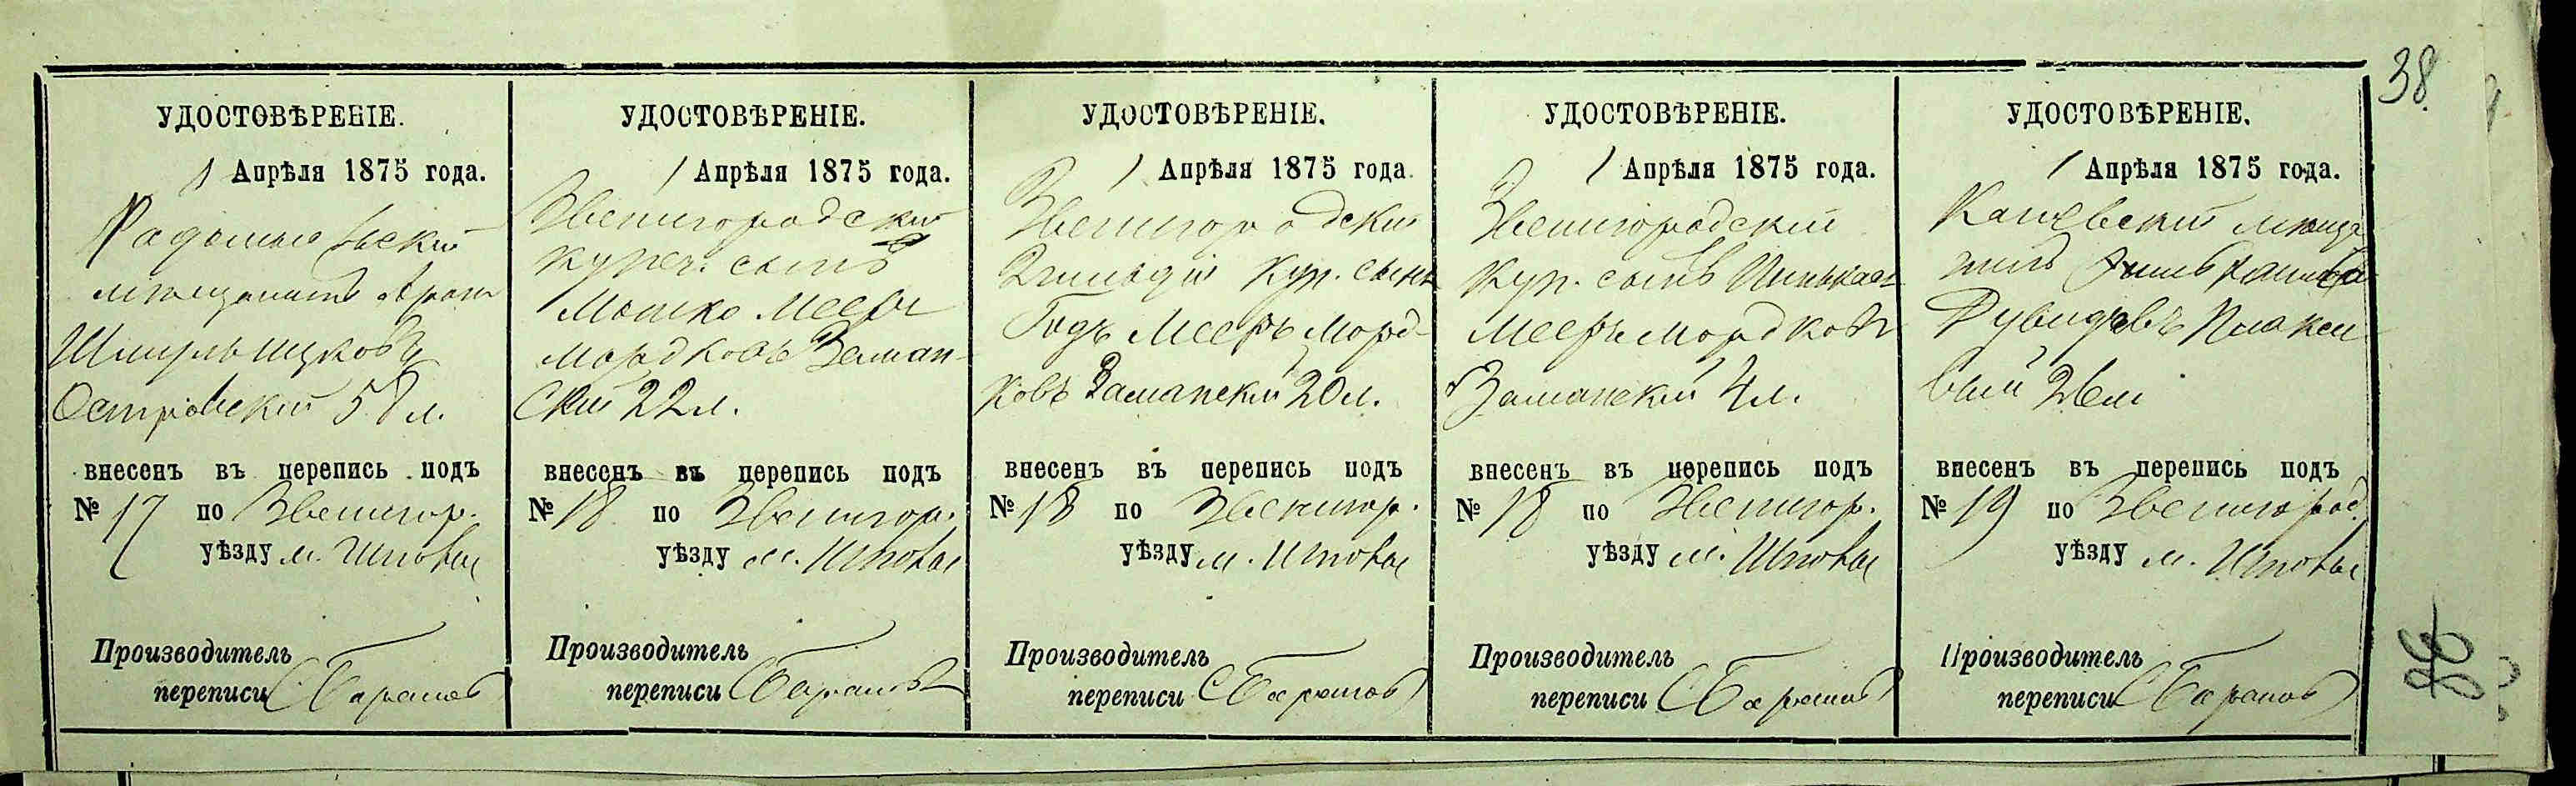 38.
УДОСТОВѢРЕНІЕ.
1 Апрѣля 1875 года.
Радомысльскій
мѣщанинъ
Шмуль Ицковъ
Островскій 58 л.
внесенъ въ перепись подъ
№ 17 по Звенигор.
уѣзду м. Шпола
Производитель
переписи
УДОСТОВѢРЕНІЕ.
1 Апрѣля 1875 года.
Звенигородскій
купеч. сынъ
Мошко Меер
Мордковъ Заман-
скій 22 л.
внесенъ въ перепись подъ
№ 18 по Звенигор.
уѣзду м. Шпола
Производитель
переписи
УДОСТОВѢРЕНІЕ.
1 Апрѣля 1875 года.
Звенигородскій
куп. сынъ
Мееръ Морд-
ковъ Заманскій 20 л.
внесенъ въ перепись подъ
№ 18 по Звенигор.
уѣзду м. Шпола
Производитель
переписи
УДОСТОВѢРЕНІЕ.
1 Апрѣля 1875 года.
Звенигородскій
куп. сынъ Пинькасъ
Мееръ Мордковъ
Заманскій 4 л.
внесенъ въ перепись подъ
№ 18 по Звенигор.
уѣзду м. Шпола
Производитель
переписи
УДОСТОВѢРЕНІЕ.
1 Апрѣля 1875 года.
Каневскій мѣща-
нинъ
Рувидовъ
внесенъ въ перепись подъ
№ 19 по Звенигород.
уѣзду м. Шпола
Производитель
переписи